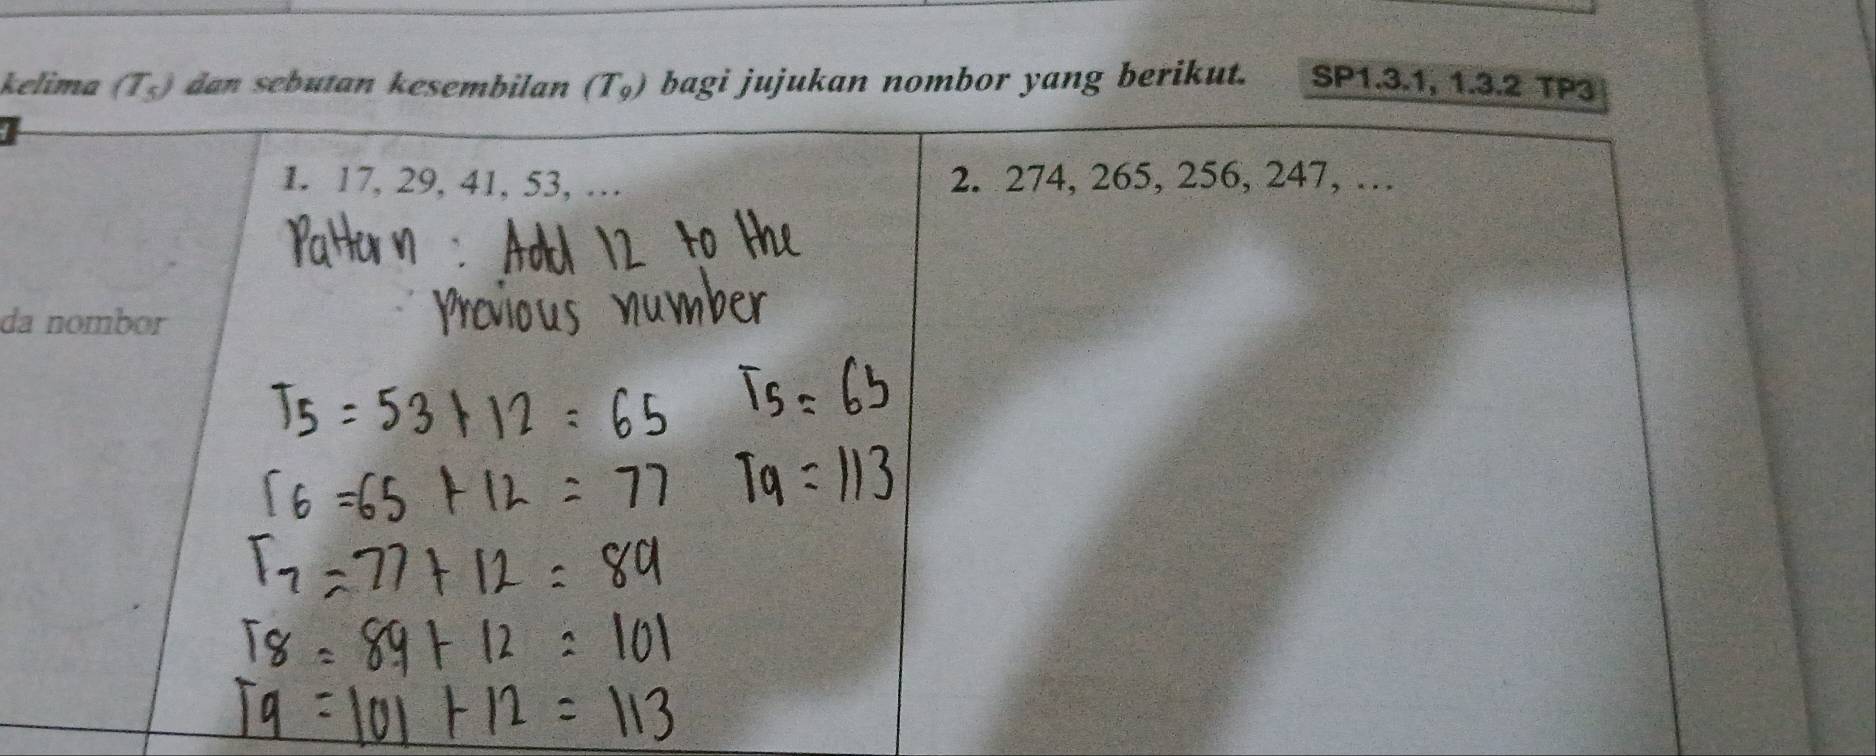 kelima (T5) dan sebutan kesembilan (T9) bagi jujukan nombor yang berikut.
SP1.3.1, 1.3.2 TP3
da nombor
1. 17, 29, 41, 53, ...
Pattern : Add 12 to the
previous number
T5 = 53 + 12 = 65
T6 = 65 + 12 = 77
T7 = 77 + 12 = 89
T8 = 89 + 12 = 101
T9 = 101 + 12 = 113
T5 = 65
T9 = 113
2. 274, 265, 256, 247, ...